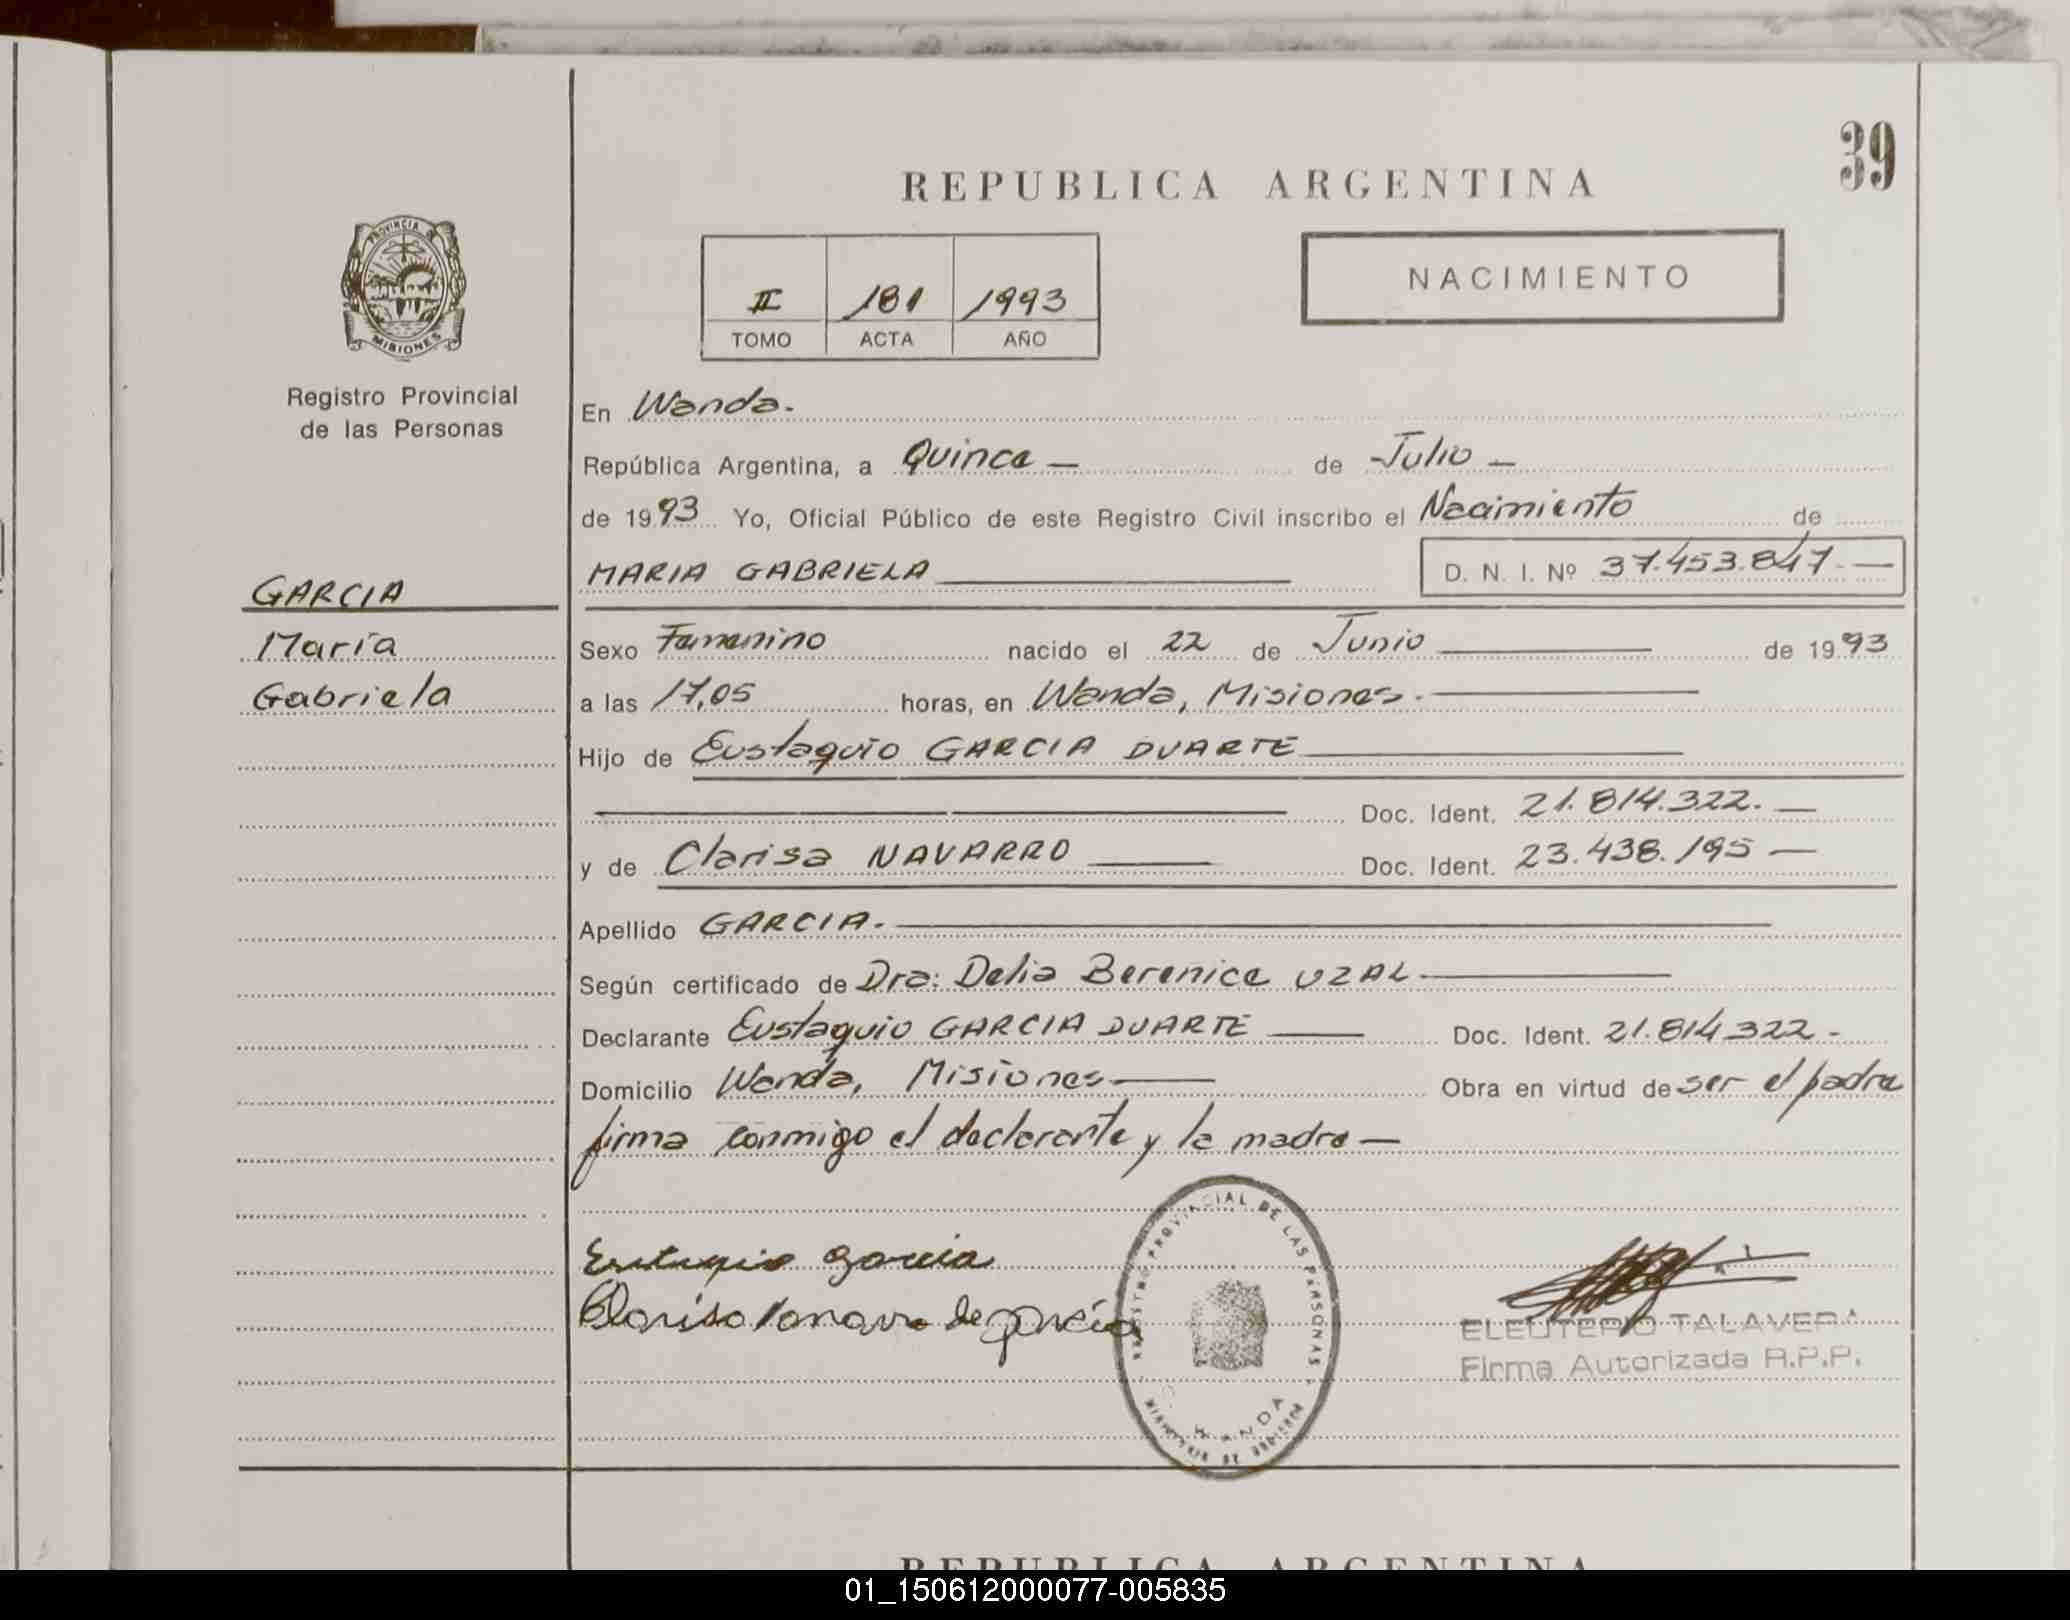 39
REPUBLICA ARGENTINA
PROVINCIA DE
MISIONES
Registro Provincial
de las Personas
II 181 1993
TOMO ACTA AÑO
NACIMIENTO
En Wanda.
República Argentina, a Quince — de Julio —
de 1993 Yo, Oficial Público de este Registro Civil inscribo el Nacimiento de
MARIA GABRIELA D. N. I. Nº 37.453.847.—
GARCIA
María
Gabriela
Sexo Femenino nacido el 22 de Junio de 1993
a las 17,05 horas, en Wanda, Misiones.
Hijo de Eustaquio GARCIA DUARTE
Doc. Ident. 21.814.322.—
y de Clarisa NAVARRO Doc. Ident. 23.438.195 —
Apellido GARCIA.
Según certificado de Dra: Delia Berenice UZAL
Declarante Eustaquio GARCIA DUARTE Doc. Ident. 21.814.322-
Domicilio Wanda, Misiones Obra en virtud de ser el padre
firma conmigo el declarante y la madre —
Eustaquio Garcia
Clarisa Navarro de garcía
REGISTRO PROVINCIAL DE LAS PERSONAS
WANDA
MINISTERIO DE GOBIERNO
ELEUTERIO TALAVERA
Firma Autorizada R.P.P.
REPUBLICA ARGENTINA
01_150612000077-005835